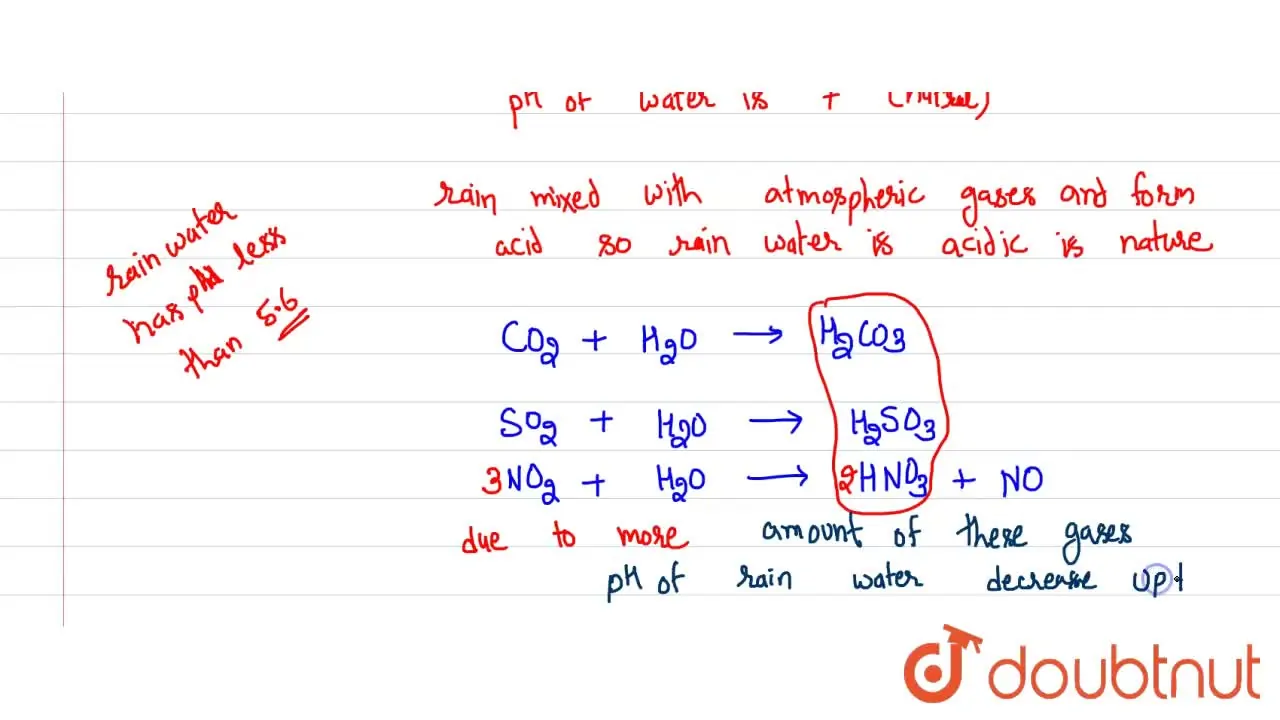 pH of water is 7 (nutral)
rain mixed with atmospheric gases and form
acid so rain water is acidic is nature
rain water
has pH less
than 5.6
CO2 + H2O → H2CO3
SO2 + H2O → H2SO3
3NO2 + H2O → 2HNO3 + NO
due to more amount of these gases
pH of rain water decrease upt
doubtnut